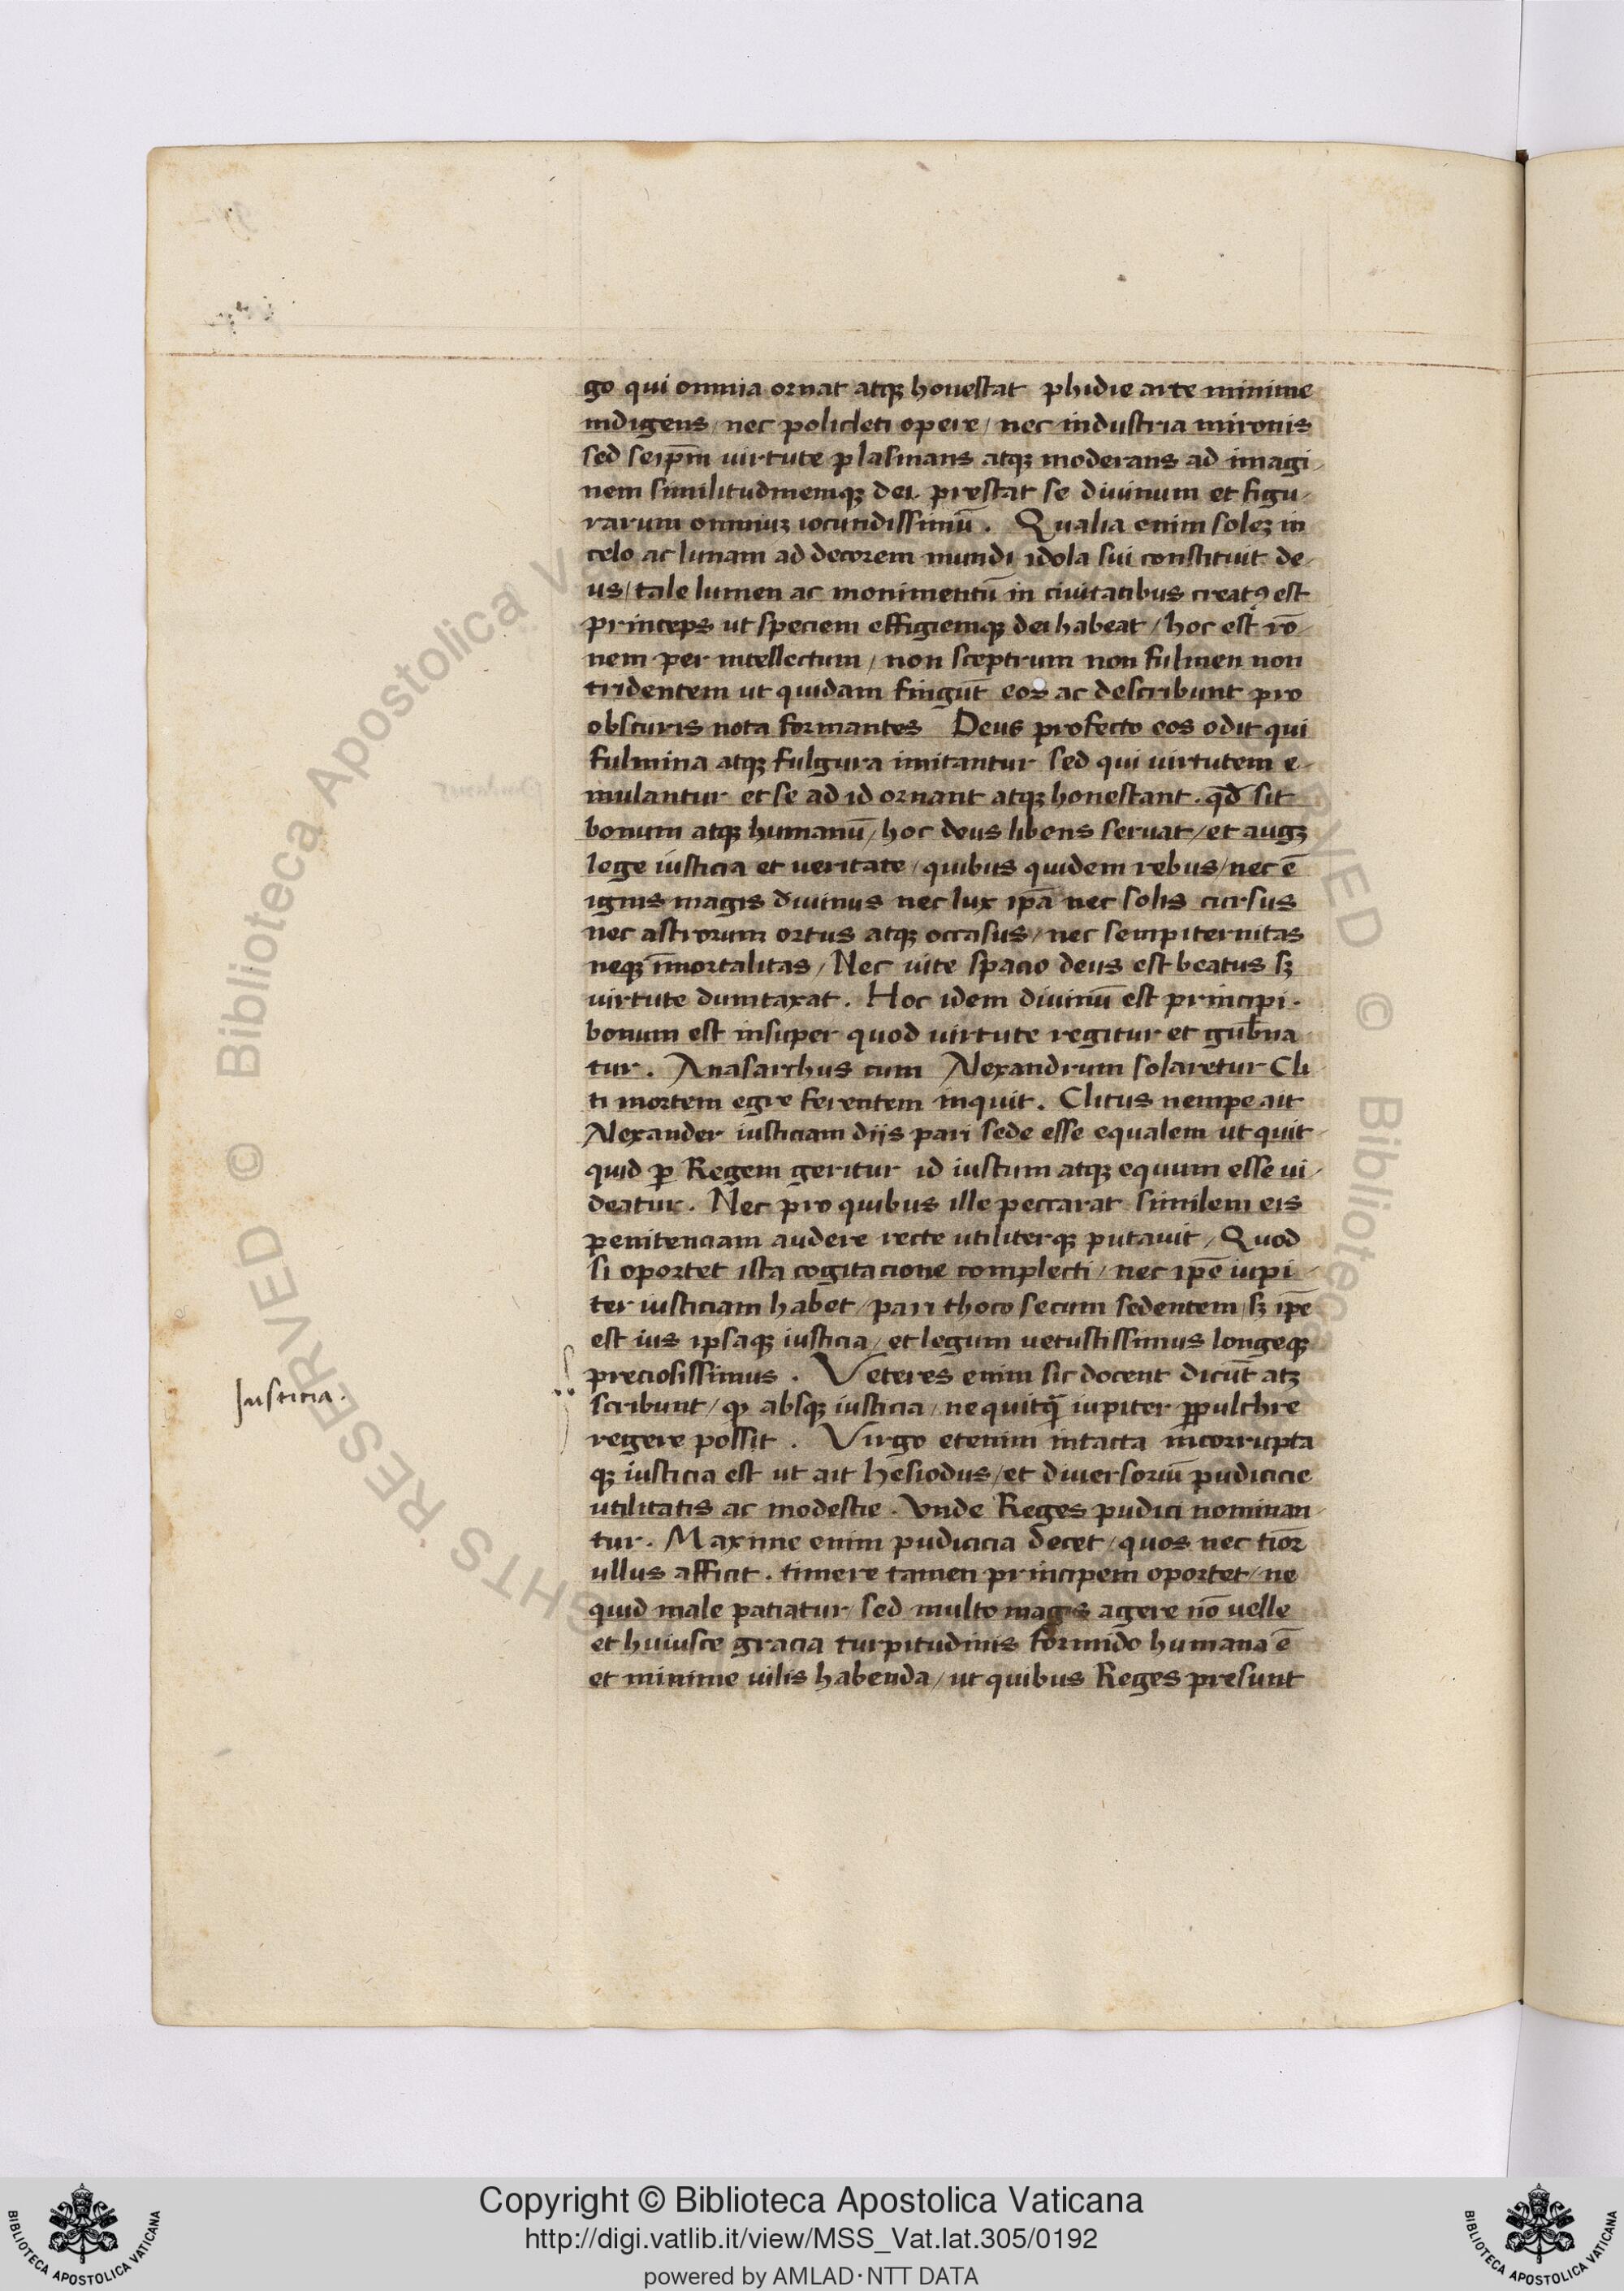 go qui omnia ornat atqꝫ honestat phidie arte minime
indigens / nec policleti opere / nec industria mironis
sed seip̄m virtute plasmans atqꝫ moderans ad imagi-
nem similitudinemqꝫ dei. prestat se divinum et figu-
rarum omniuꝫ iocundissimū. Qualia enim soleꝫ in
celo ac lunam ad decorem mundi idola sui constituit de-
us / tale lumen ac monimentū in civitatibus creatꝰ est
princeps ut speciem effigiemqꝫ dei habeat / hoc est rō-
nem per intellectum / non sceptrum non fulmen non
tridentem ut quidam fingūt eos ac describunt pro
obscuris nota formantes Deus profecto eos odit qui
fulmina atqꝫ fulgura imitantur sed qui virtutem e-
mulantur et se ad id ornant atqꝫ honestant. qd̄ sit
bonum atqꝫ humanū / hoc deus libens servat / et augꝫ
lege iusticia et veritate / quibus quidem rebus / nec ē
ignis magis divinus nec lux ip̄a nec solis cursus
nec astrorum ortus atqꝫ occasus / nec sempiternitas
neqꝫ īmortalitas / Nec vite spacio deus est beatus sꝫ
virtute dumtaxat. Hoc idem divinū est principi.
bonum est insuper quod virtute regitur et gub̄na
tur. Anasarchus cum Alexandrum solaretur Cli
ti mortem egre ferentem inquit. Clitus nempe ait
Alexander iusticiam diis pari sede esse equalem ut quit-
quid ꝑ Regem geritur id iustum atqꝫ equum esse vi-
deatur. Nec pro quibus ille peccarat similem eis
penitenciam audere recte utiliterqꝫ putavit / Quod
si oportet ista cogitacione complecti / nec ip̄e iupi-
ter iusticiam habet / pari thoro secum sedentem / sꝫ ip̄e
est ius ipsaqꝫ iusticia / et legum vetustissimus longeqꝫ
preciosissimus. Veteres enim sic docent dicūt atꝫ
Iusticia.
scribunt / ꝙ absqꝫ iusticia / ne quitqᷓ iupiter ꝑpulchre
regere possit. Virgo etenim intacta incorrupta
qꝫ iusticia est ut ait hesiodus / et diversoriū pudicicie
utilitatis ac modestie. Vnde Reges pudici nominan-
tur. Maxime enim pudicicia decet / quos nec tīor
ullus afficit. timere tamen principem oportet / ne
quid male patiatur / sed multo magis agere nō velle
et huiusce gracia turpitudinis formido humana ē
et minime vilis habenda / ut quibus Reges presunt
Copyright © Biblioteca Apostolica Vaticana
http://digi.vatlib.it/view/MSS_Vat.lat.305/0192
powered by AMLAD·NTT DATA